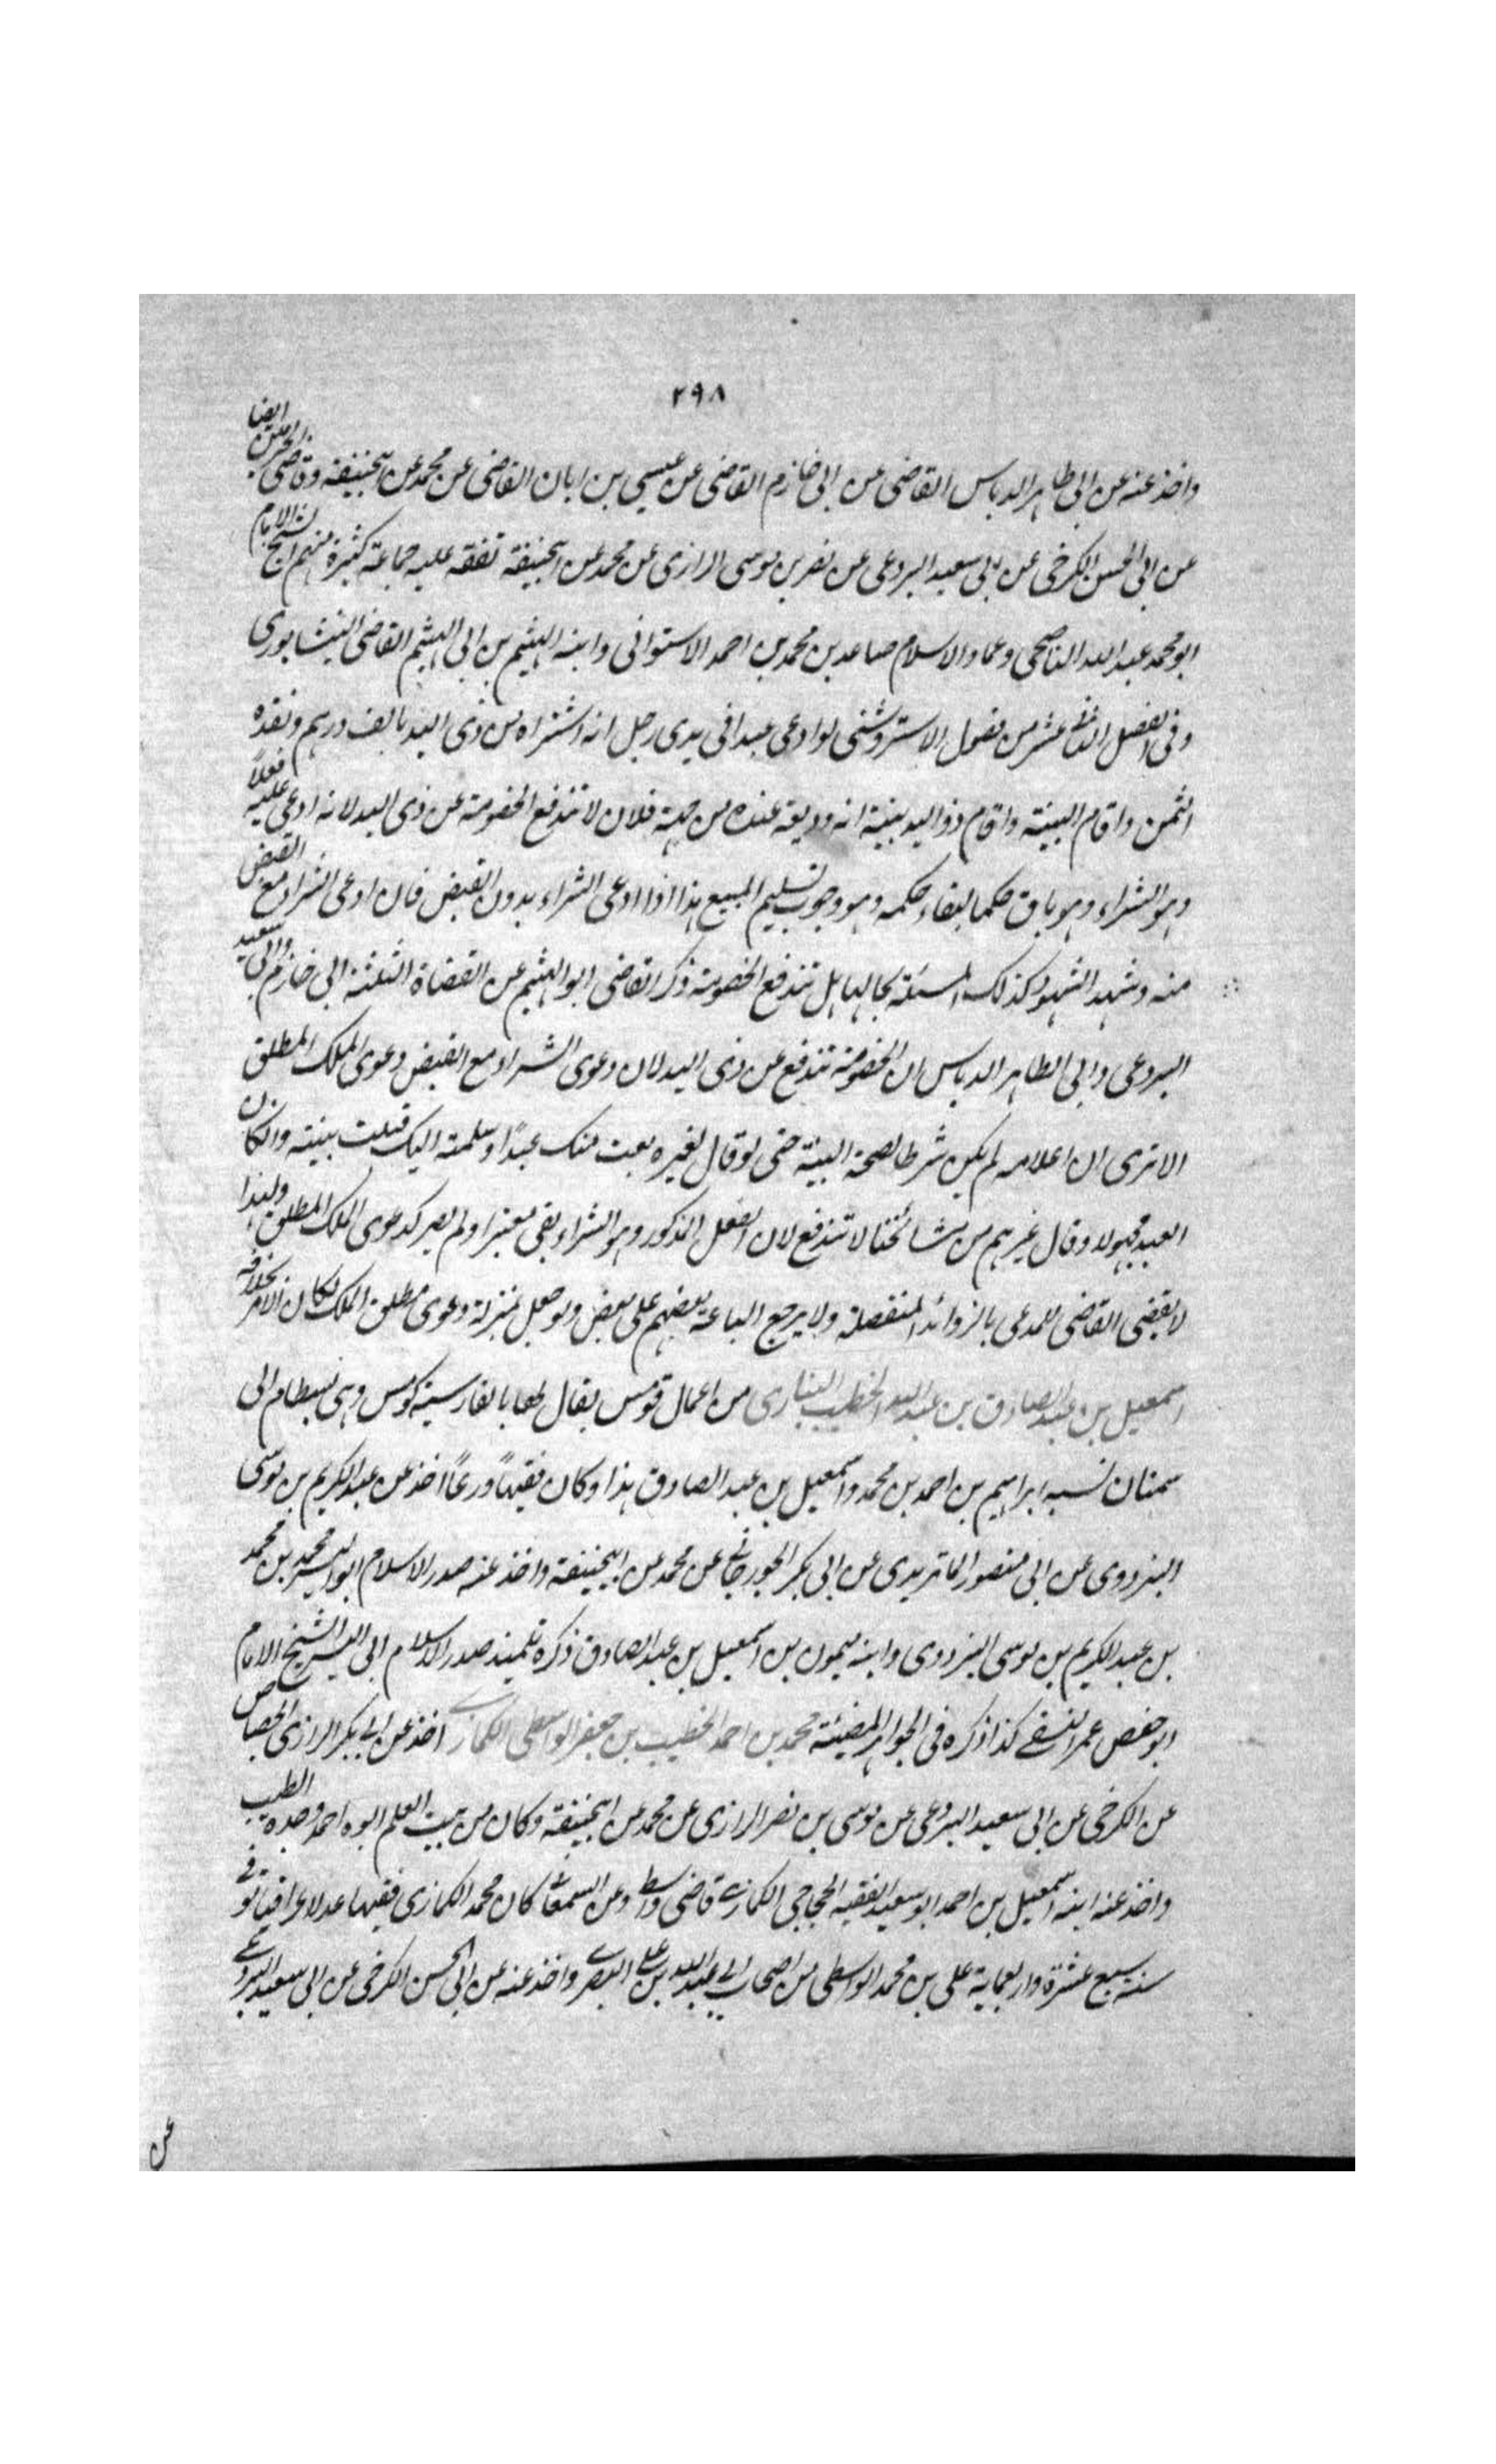 ٢٩٨
واخذ عنه عن ابی طاهر الدباس القاضی عن ابی خازم القاضی عن عیسی بن ابان القاضی عن محمد عن ابیحنیفة وقاضی الحرمین ایضا
عن ابی الحسن الکرخی عن ابی سعید البردعی عن نصر بن موسی الرازی عن محمد عن ابیحنیفة تفقه علیه جماعة کثیرة منهم الشیخ الامام
ابو محمد عبد الله الناصحی وعماد الاسلام صاعد بن محمد بن احمد الاستوائی وابنه الهیثم بن ابی الهیثم القاضی النیشابوری
وفی الفصل الثانی عشر من فصول الاستروشنی لو ادعی عبدا فی یدی رجل انه اشتراه من ذی الید بالف درهم ونقده
الثمن واقام البینة واقام ذو الید بینة انه ودیعة عنده من جهة فلان لا تندفع الخصومة عن ذی الید لانه ادعی علیه فعلاً
وهو الشراء وهو باق حکما لبقاء حکمه وهو وجوب تسلیم المبیع هذا اذا ادعی الشراء بدون القبض فان ادعی الشراء مع القبض
منه وشهد الشهود کذلک المسئلة بحالها هل تندفع الخصومة ذکر القاضی ابو الهیثم عن القضاة الثلثة ابی خازم وابی سعید
البردعی وابی الطاهر الدباس ان الخصومة تندفع عن ذی الید لان دعوی الشراء مع القبض دعوی الملک المطلق
الا تری ان اعلامه لم یکن شرطا لصحة البینة حتی لو قال لغیره بعت منک عبدًا وسلمته الیک قبلت بینته وان کان
العبد مجهولا وقال غیرهم من مشائخنا لا تندفع لان الفعل المذکور وهو الشراء بقی معتبرا ولم یصر کدعوی الملک المطلق ولهذا
لا یقضی القاضی للمدعی بالزوائد المنفصلة ولا یرجع الباعة بعضهم علی بعض ولو جعل بمنزلة دعوی مطلق الملک لکان الامر بخلافه
اسمعیل بن عبد الصادق بن عبد الله الخطیب البیاری من اعمال قومس یقال لها بالفارسیة کومس وهی بسطام الی
سمنان نسبه ابراهیم بن احمد بن محمد واسمعیل بن عبد الصادق هذا وکان فقیهاً ورعاً اخذ عن عبد الکریم بن موسی
البزدوی عن ابی منصور الماتریدی عن ابی بکر الجوزجانی عن محمد عن ابیحنیفة واخذ عنه صدر الاسلام ابو الیسر محمد بن محمد
بن عبد الکریم بن موسی البزدوی وابنه میمون بن اسمعیل بن عبد الصادق ذکره تلمیذ صدر الاسلام ابی الیسر الشیخ الامام
ابو حفص عمر النسفی کذا ذکره فی الجواهر المضیئة محمد بن احمد الخطیب بن جعفر الواسطی الکماری اخذ عن ابی بکر الرازی الجصاص
عن الکرخی عن ابی سعید البردعی عن موسی بن نصر الرازی عن محمد عن ابیحنیفة وکان من بیت العلم ابوه احمد وجده الطیب
واخذ عنه ابنه اسمعیل بن احمد ابو سعید الفقیه الحجاجی الکماری قاضی واسط وعن السمعانی کان محمد الکماری فقیها عدلا عراقیا توفی
سنة سبع عشرة واربعمایة علی بن محمد الواسطی من اصحاب ابی عبد الله بن علی البصری واخذ عنه عن ابی الحسن الکرخی عن ابی سعید البردعی
عن